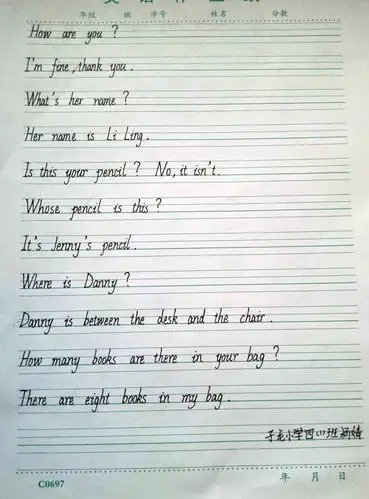 年级 班 学号 姓名 分数
How are you ?
I'm fine, thank you.
What's her name ?
Her name is Li Ling.
Is this your pencil ? No, it isn't.
Whose pencil is this ?
It's Jenny's pencil.
Where is Danny ?
Danny is between the desk and the chair.
How many books are there in your bag ?
There are eight books in my bag.
子龙小学四(1)班
C0697 年 月 日